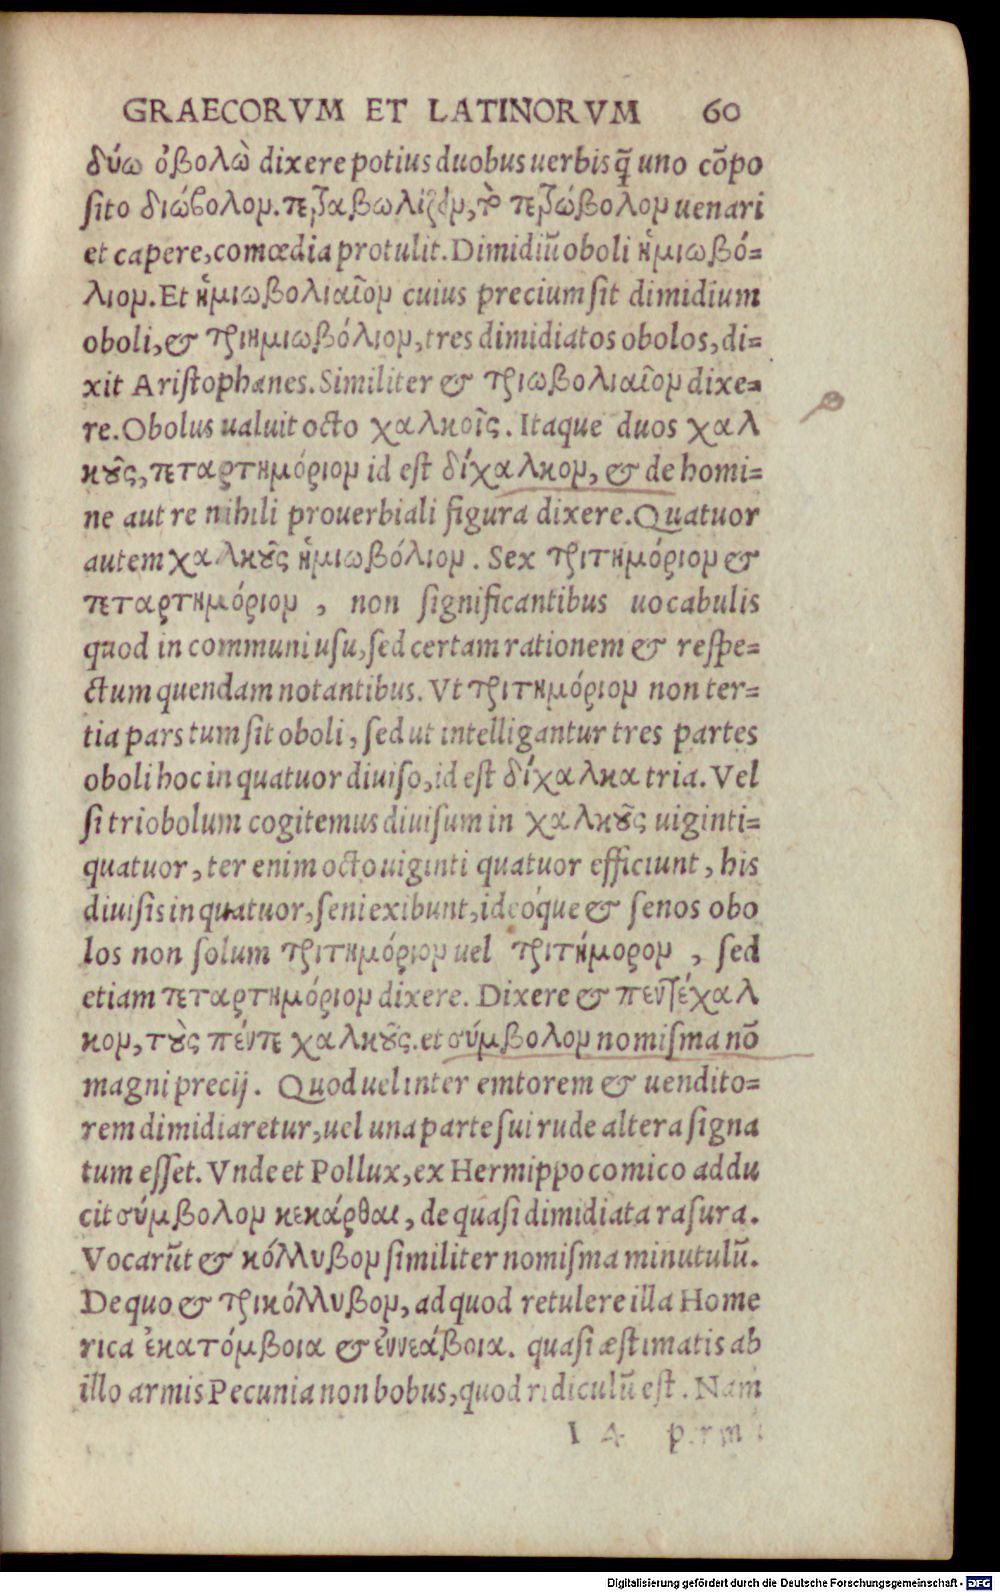 GRAECORVM ET LATINORVM 60
δύω ὀβολὼ dixere potius duobus uerbis q̃ uno cõpo
ſito διώβολον. τετρωβολίζειν, τὸ τετρώβολον uenari
et capere, comœdia protulit. Dimidiũ oboli ἡμιωβό=
λιον. Et ἡμιωβολιαῖον cuius precium ſit dimidium
oboli, & τριημιωβόλιον, tres dimidiatos obolos, di=
xit Ariſtophanes. Similiter & τριωβολιαῖον dixe=
re. Obolus ualuit octo χαλκοῖς. Itaque duos χαλ
κοῦς, τεταρτημόριον id eſt δίχαλκον, & de homi=
ne aut re nihili prouerbiali figura dixere. Quatuor
autem χαλκοῦς ἡμιωβόλιον. Sex τριτημόριον &
τεταρτημόριον, non ſignificantibus uocabulis
quod in communi uſu, ſed certam rationem & reſpe=
ctum quendam notantibus. Vt τριτημόριον non ter=
tia pars tum ſit oboli, ſed ut intelligantur tres partes
oboli hoc in quatuor diuiſo, id eſt δίχαλκα tria. Vel
ſi triobolum cogitemus diuiſum in χαλκοῦς uiginti=
quatuor, ter enim octo uiginti quatuor efficiunt, his
diuiſis in quatuor, ſeni exibunt, ideóque & ſenos obo
los non ſolum τριτημόριον uel τριτήμορον, ſed
etiam τεταρτημόριον dixere. Dixere & πεντέχαλ
κον, τοὺς πέντε χαλκοῦς. et σύμβολον nomiſma nõ
magni precij. Quod uel inter emtorem & uendito=
rem dimidiaretur, uel una parte ſui rude altera ſigna
tum eſſet. Vnde et Pollux, ex Hermippo comico addu
cit σύμβολον κεκάρθαι, de quaſi dimidiata raſura.
Vocarũt & κόλλυβον ſimiliter nomiſma minutulũ.
De quo & τρικόλλυβον, ad quod retulere illa Home
rica ἑκατόμβοια & ἐννεάβοια. quaſi æſtimatis ab
illo armis Pecunia non bobus, quod ridiculũ eſt. Nam
I 4
Digitalisierung gefördert durch die Deutsche Forschungsgemeinschaft - DFG